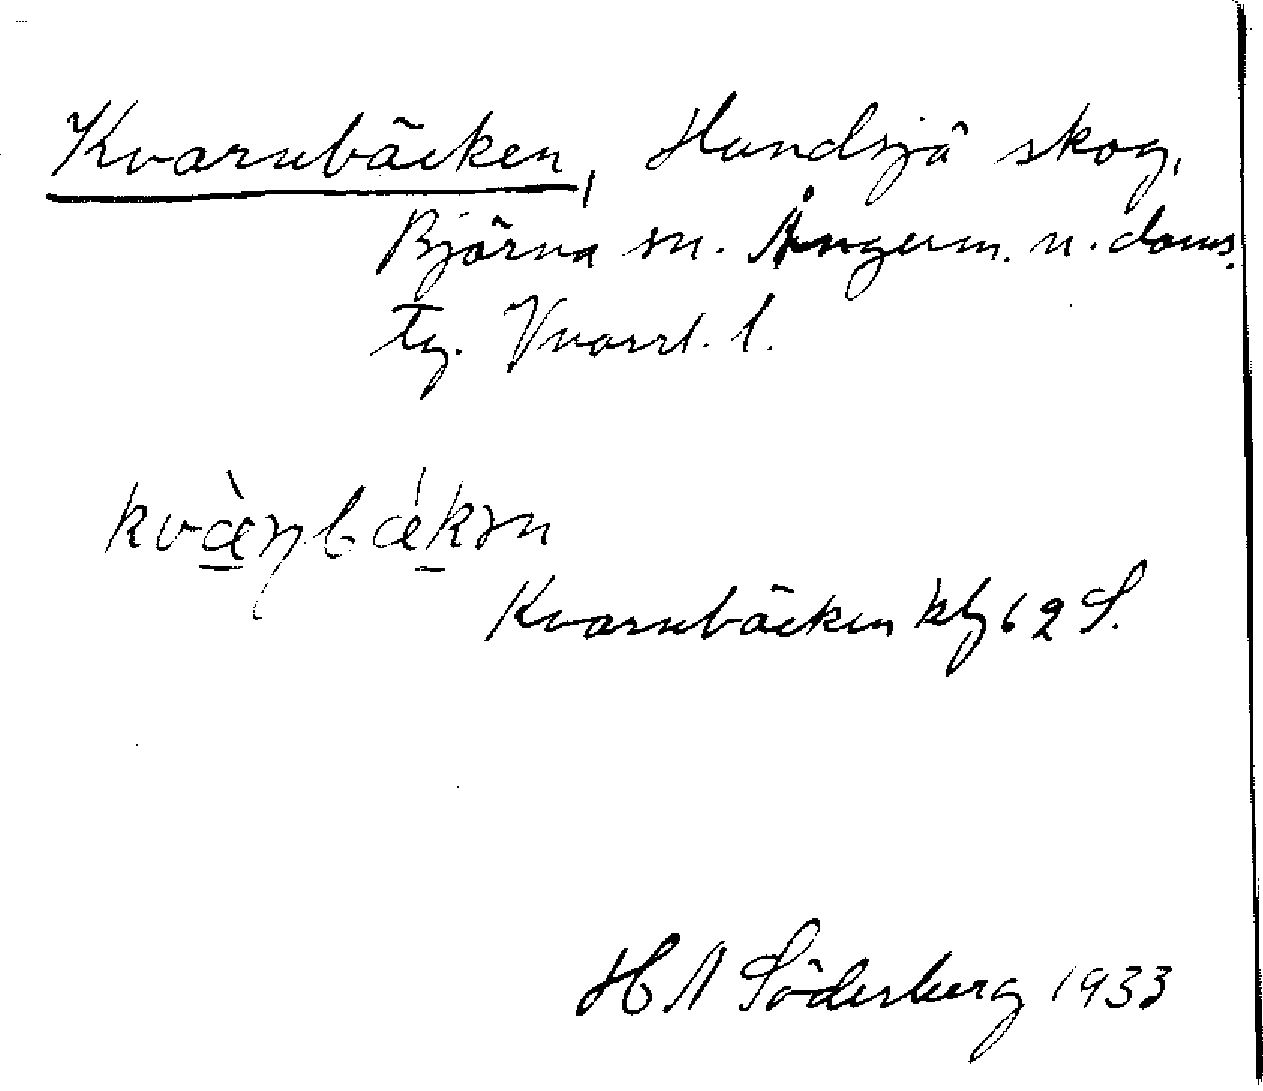 Kvarnbäcken, Hundsjö skog,
Björna sn. Ångerm. n. doms.
tg. Vnorrl. l.
kvæ̀ṇbækən
Kvarnbäcken kbl 62 S.
H A Söderberg 1933